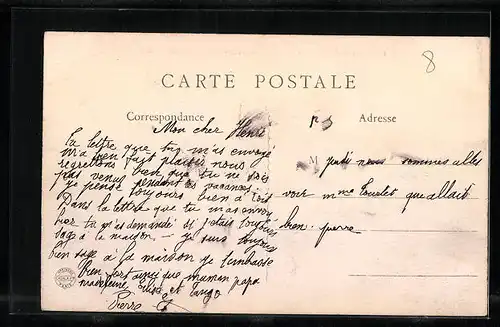 8
CARTE POSTALE
Correspondance
Adresse
Mon cher Henri
La lettre que tu m'as envoyé
m'a bien fait plaisir nous
regrettons bien que tu ne sois
pas venus pendant les vacances
je pense toujours bien à toi
Dans la lettre que tu m'as envoy
hier tu m'as demandé si j'étais toujours
sage à la maison - je suis toujours
bien sage à la maison je t'embrasse
bien fort ainsi que maman papa
madeleine et
Pierre
P S
M jeudi nous sommes allés
voir Mme que allait
bien. pierre